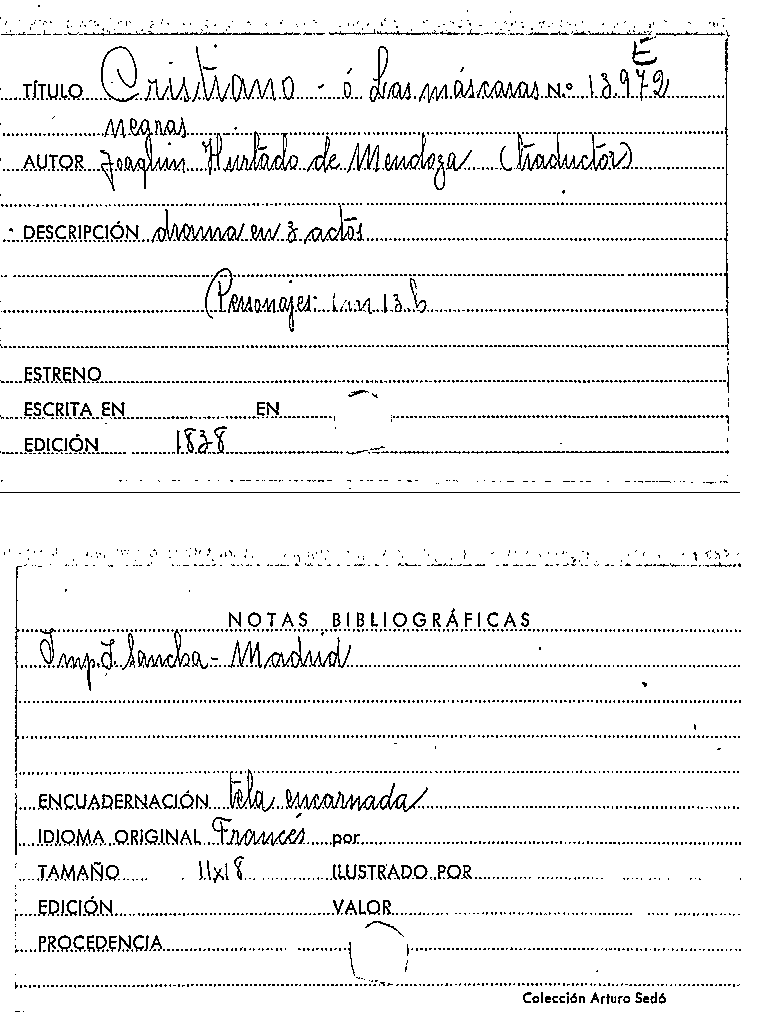 E
TÍTULO Cristiano - ó Las máscaras N.º 13.972
negras
AUTOR Joaquin Hurtado de Mendoza (traductor)
DESCRIPCIÓN drama en 3 actos
Personajes: 1 m 13 h
ESTRENO
ESCRITA EN EN
EDICIÓN 1838
NOTAS BIBLIOGRÁFICAS
Imp. J. Sancha - Madrid
ENCUADERNACIÓN tela encarnada
IDIOMA ORIGINAL Francés por
TAMAÑO 11x18 ILUSTRADO POR
EDICIÓN VALOR
PROCEDENCIA
Colección Arturo Sedó